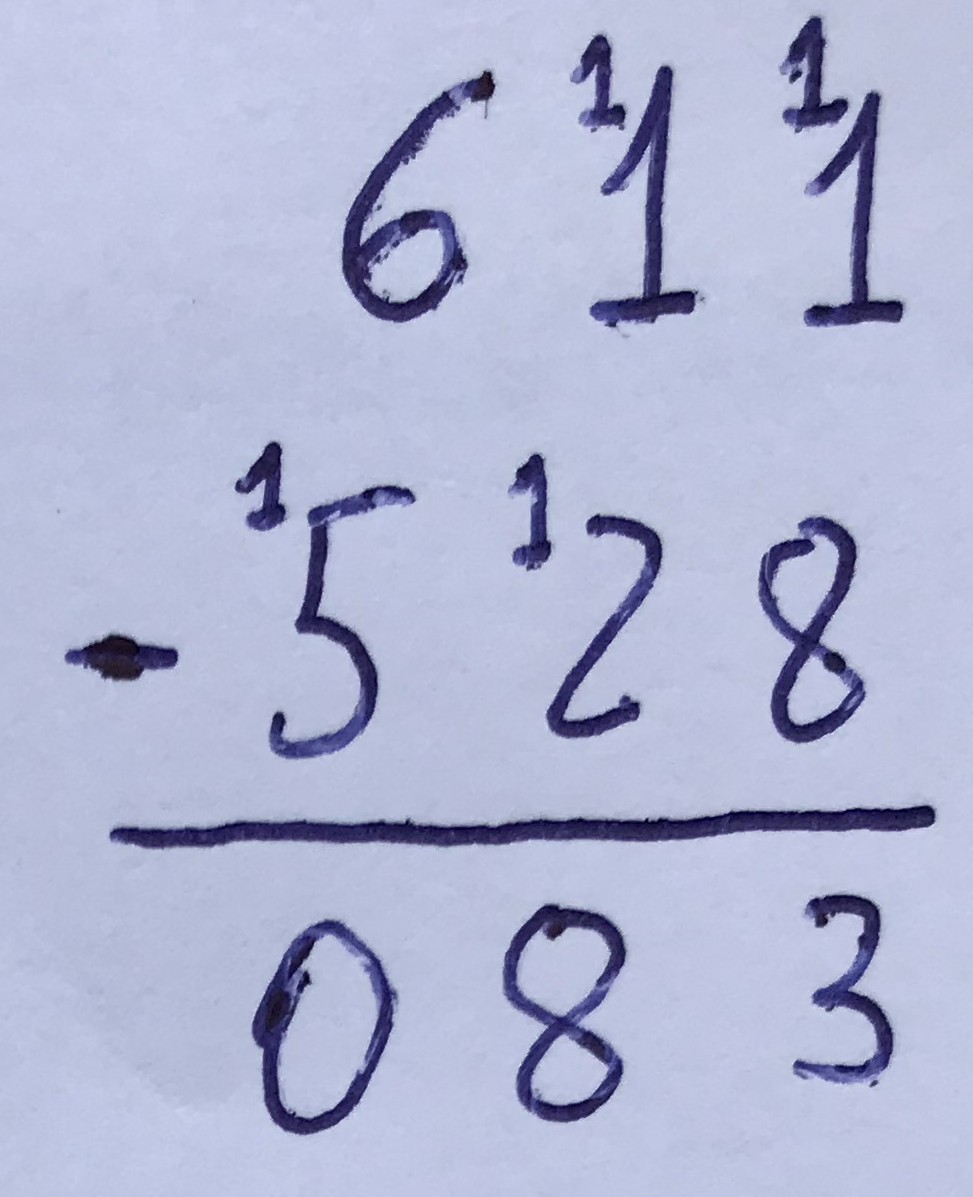 6 ¹1 ¹1
- ¹5 ¹2 8
0 8 3